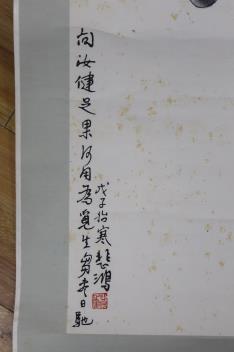 問汝健足果何用為覓生芻盡日馳
戊子始寒悲鴻